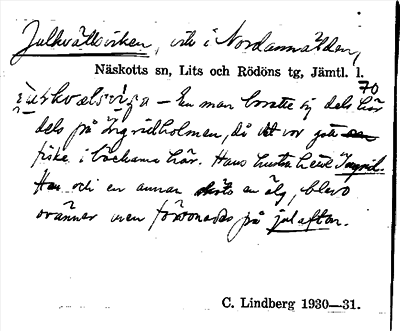 Julkvällsviken, vik i Nordannälden,
Näskotts sn, Lits och Rödöns tg, Jämtl. l.
70
— En man bosatte sig dels här
dels på Ingridholmen, då det var gott om
fiske i bäckarna här. Hans hustru hette Ingrid.
Han och en annan sköto en älg, blevo
ovänner men försonades på julafton.
C. Lindberg 1930—31.